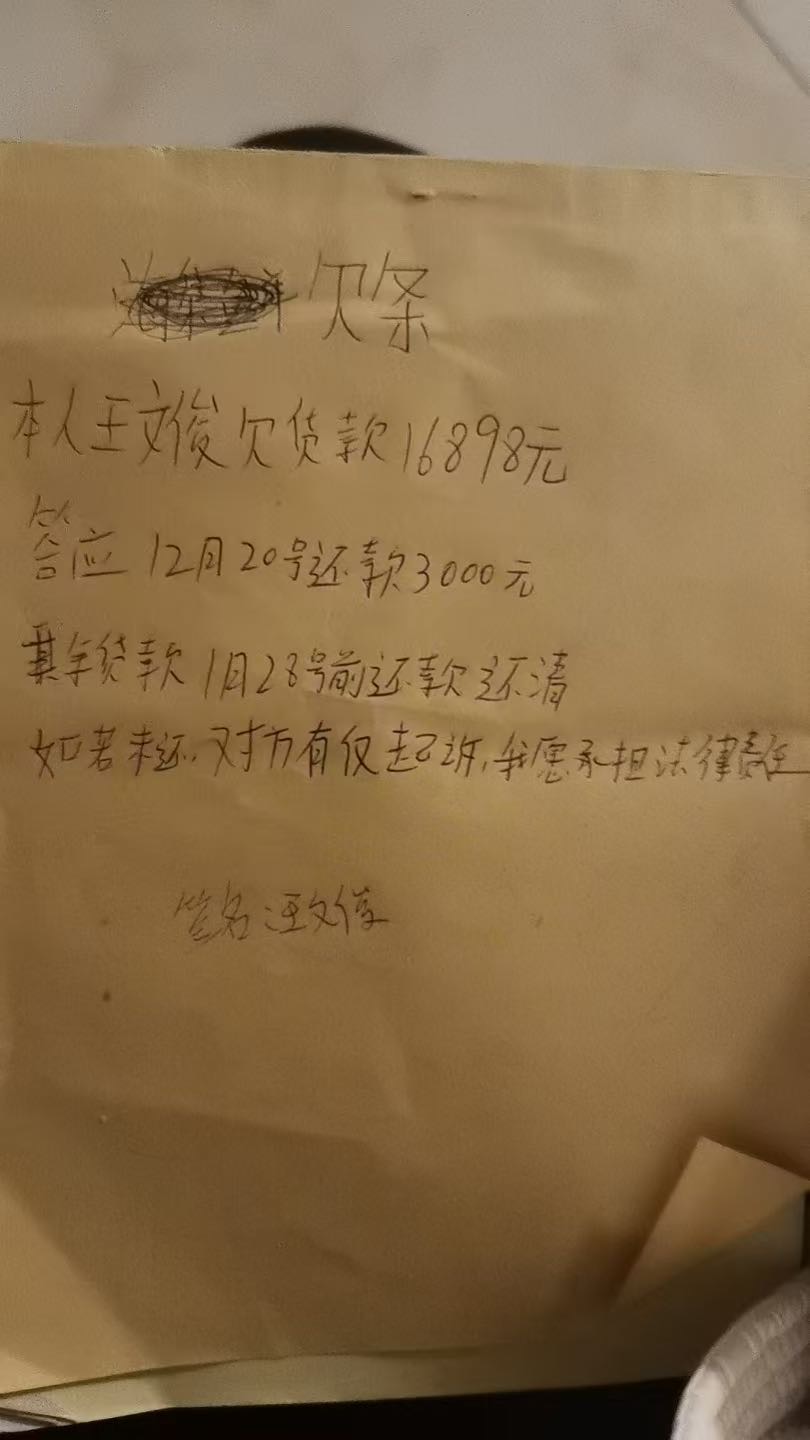 欠条
本人王文俊欠货款16898元
答应12月20号还款3000元
其余货款1月28号前还款还清
如若未还,对方有仅起诉,我愿承担法律责任
签名:王文俊